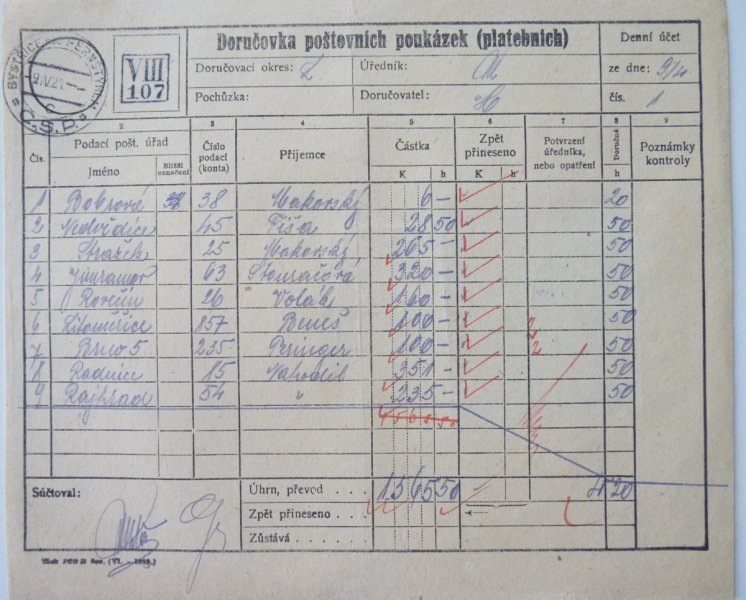 Doručovka poštovních poukázek (platebních)
Denní účet
BYSTŘICE n. PERNŠTÝNEM
9.IV.21.
C
Č.S.P.
VIII
107
Doručovací okres:
Úředník:
ze dne: 9/4
Pochůzka:
Doručovatel:
čís. 1
2 3 4 5 6 7 8 9
Čís. Podací pošt. úřad Číslo podací (konta) Příjemce Částka Zpět přineseno Potvrzení úředníka, nebo opatření Doručné Poznámky kontroly
Jméno Bližší označení K h K h h
1 Bobrová 38 Makovský 6 – 20
2 Nedvědice 45 Fiša 28 50 50
3 Strážek 25 Makovský 265 – 50
4 63 320 – 50
5 26 Volák 160 – 50
6 Litoměřice 857 Beneš 100 – 50
7 Brno 5 235 Peringer 100 – 50
8 Radnice 15 351 – 50
9 Rajhrad 54 " 235 – 50
Súčtoval:
Úhrn, převod . . . 1565 50 – 4 20
Zpět přineseno . . .
Zůstává . . .